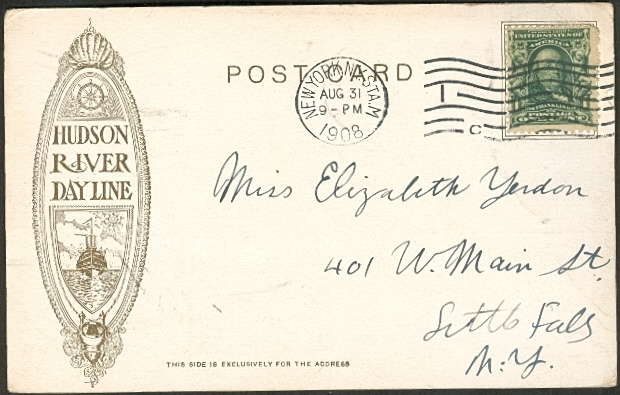 POST CARD
NEW YORK, N.Y. STA. M
AUG 31
9-PM
1908
C
UNITED STATES OF
AMERICA
FRANKLIN
POSTAGE
HUDSON
RIVER
DAY LINE
Miss Elizabeth Yerdon
401 W. Main St.
Little Falls
N.Y.
THIS SIDE IS EXCLUSIVELY FOR THE ADDRESS